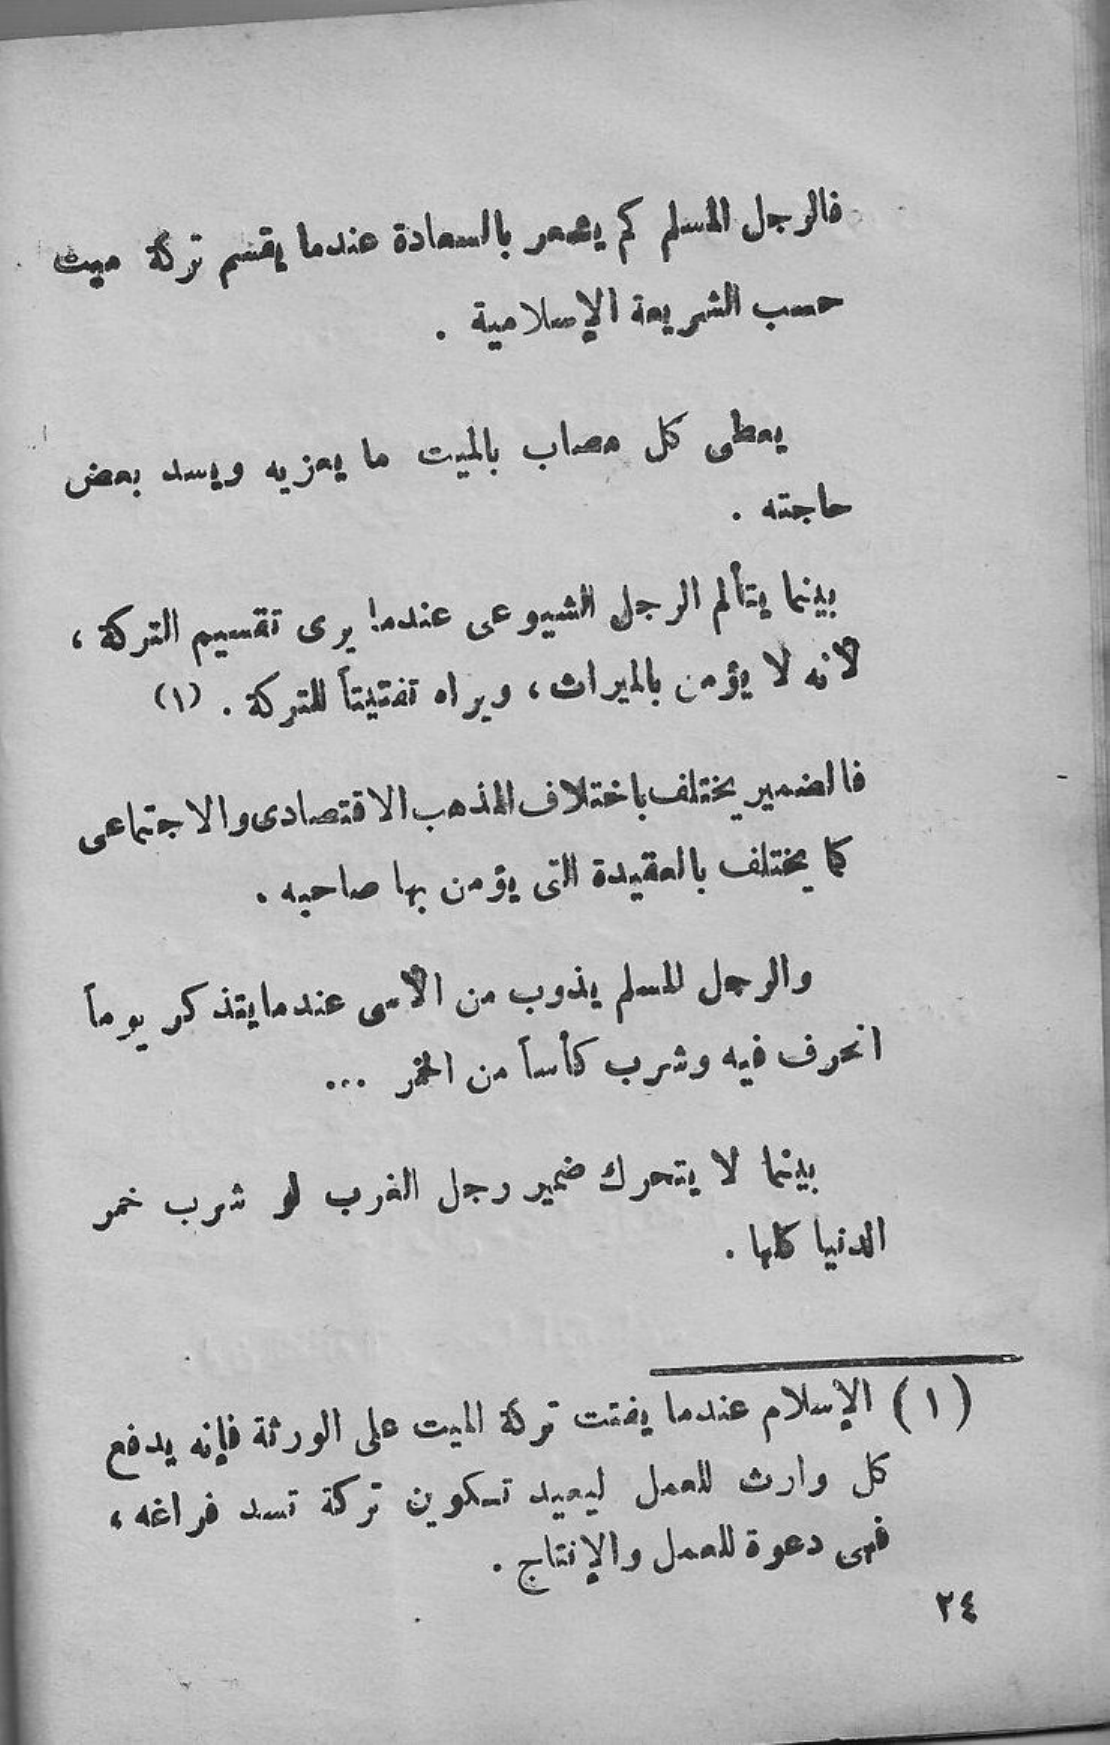 فالرجل المسلم كم يشعر بالسعادة عندما يقسم تركة ميت
حسب الشريعة الإسلامية .
يعطى كل مصاب بالميت ما يعزيه ويسد بعض
حاجته .
بينما يتألم الرجل الشيوعى عندما يرى تقسيم التركة ،
لأنه لا يؤمن بالميراث ، ويراه تفتيتاً للتركة . (١)
فالضمير يختلف باختلاف المذهب الاقتصادى والاجتماعى
كما يختلف بالعقيدة التى يؤمن بها صاحبه .
والرجل المسلم يذوب من الأسى عندما يتذكر يوماً
انحرف فيه وشرب كأساً من الخمر ...
بينما لا يتحرك ضمير رجل الغرب لو شرب خمر
الدنيا كلها .
(١) الإسلام عندما يفتت تركة الميت على الورثة فإنه يدفع
كل وارث للعمل ليعيد تكوين تركة تسد فراغه ،
فهى دعوة للعمل والإنتاج .
٢٤